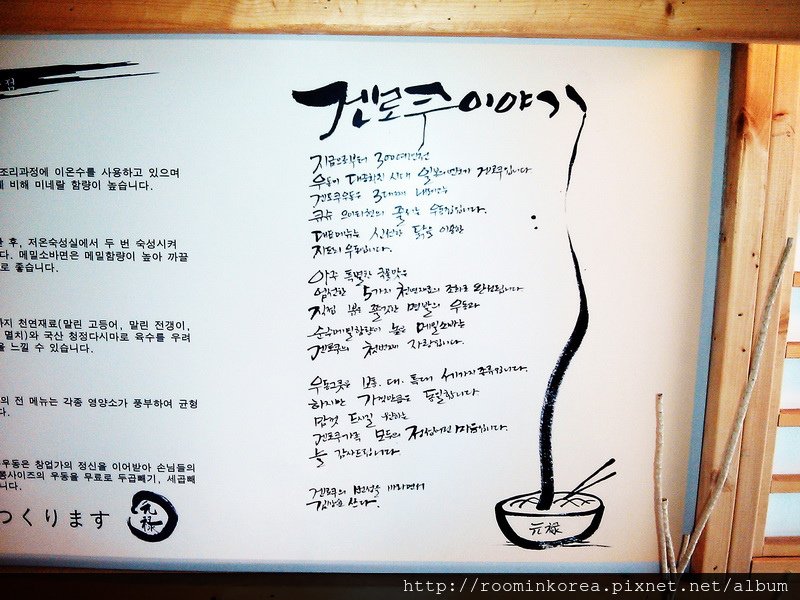 점
조리과정에 이온수를 사용하고 있으며
비해 미네랄 함량이 높습니다.
한 후, 저온숙성실에서 두 번 숙성시켜
다. 메밀소바면은 메밀함량이 높아 까끌
로 좋습니다.
까지 천연재료(말린 고등어, 말린 전갱이,
멸치)와 국산 청정다시마로 육수를 우려
을 느낄 수 있습니다.
의 전 메뉴는 각종 영양소가 풍부하여 균형
다.
우동은 창업가의 정신을 이어받아 손님들의
통사이즈의 우동을 무료로 두곱빼기, 세곱빼
니다.
つくります
元禄
겐로쿠이야기
지금으로부터 300여년전
우동이 대중화된 시대 일본의 연호가 겐로쿠입니다
겐로쿠우동은 3대째 내려오는
큐슈 모미타현의 줄서는 우동집입니다.
대표메뉴는 신선한 닭을 이용한
지도리우동입니다.
아주 특별한 국물맛은
엄선한 5가지 천연재료의 조화로 완성됩니다
직접 뽑은 쫄깃한 면발의 우동과
순수메밀함량이 높은 메밀소바는
겐로쿠의 첫번째 자랑입니다.
우동그릇은 보통, 대, 특대 세가지 종류입니다.
하지만 가격만큼은 동일합니다
맘껏 드시길 원하는
겐로쿠가족 모두의 정성어린 마음입니다.
늘 감사드립니다
겐로쿠의 번성을 바라면서
元禄
http://roominkorea.pixnet.net/album